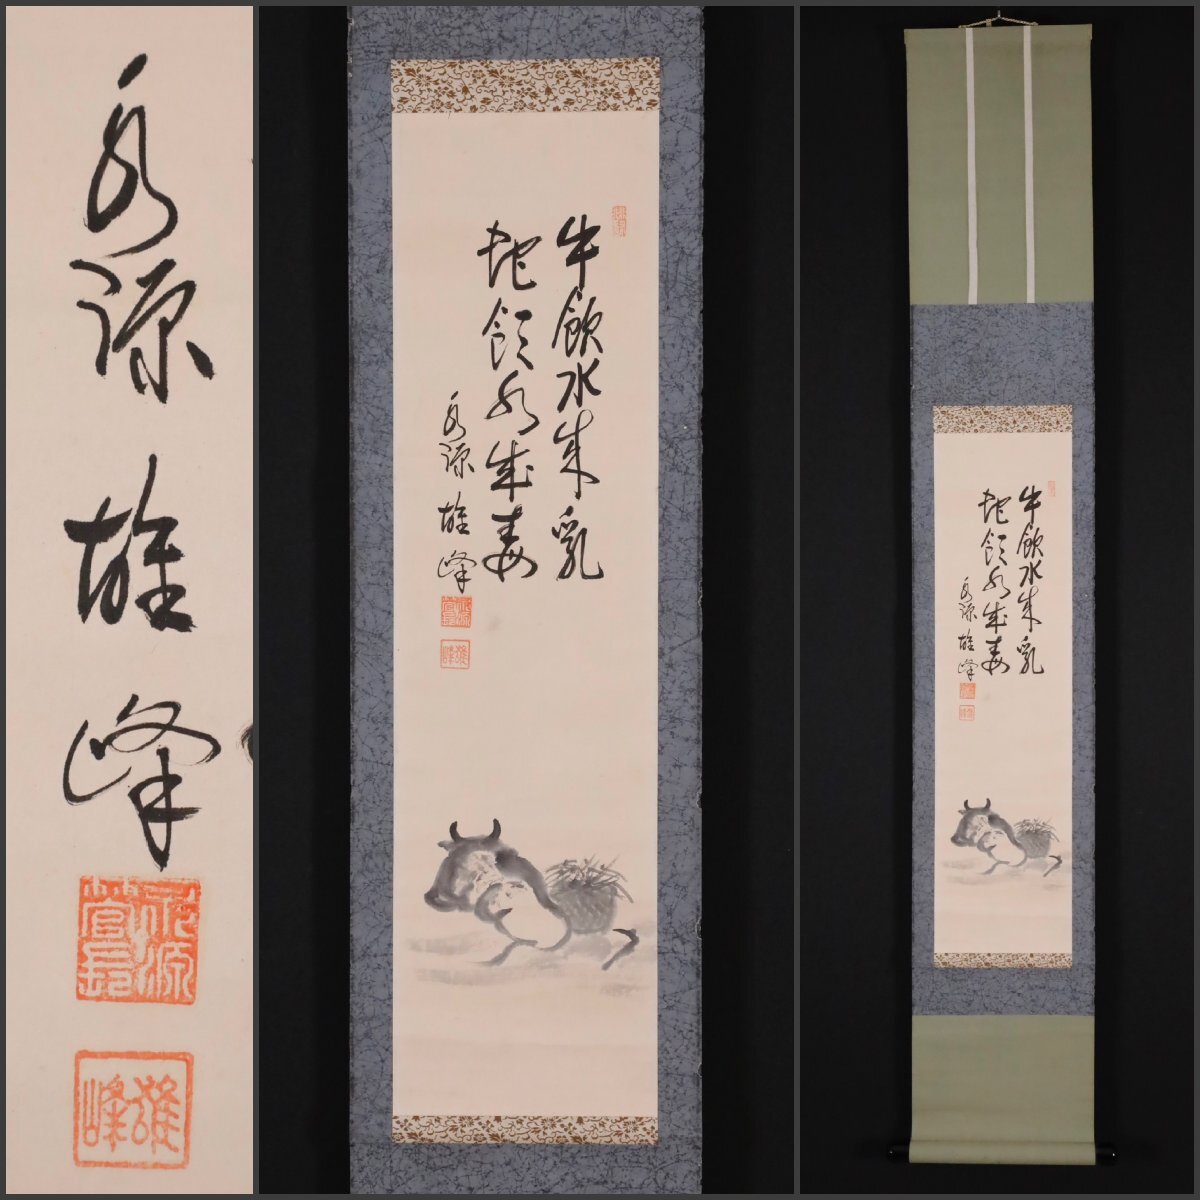 牛飲水成乳
蛇飲水成毒
永源雄峰
永源管長
雄峰